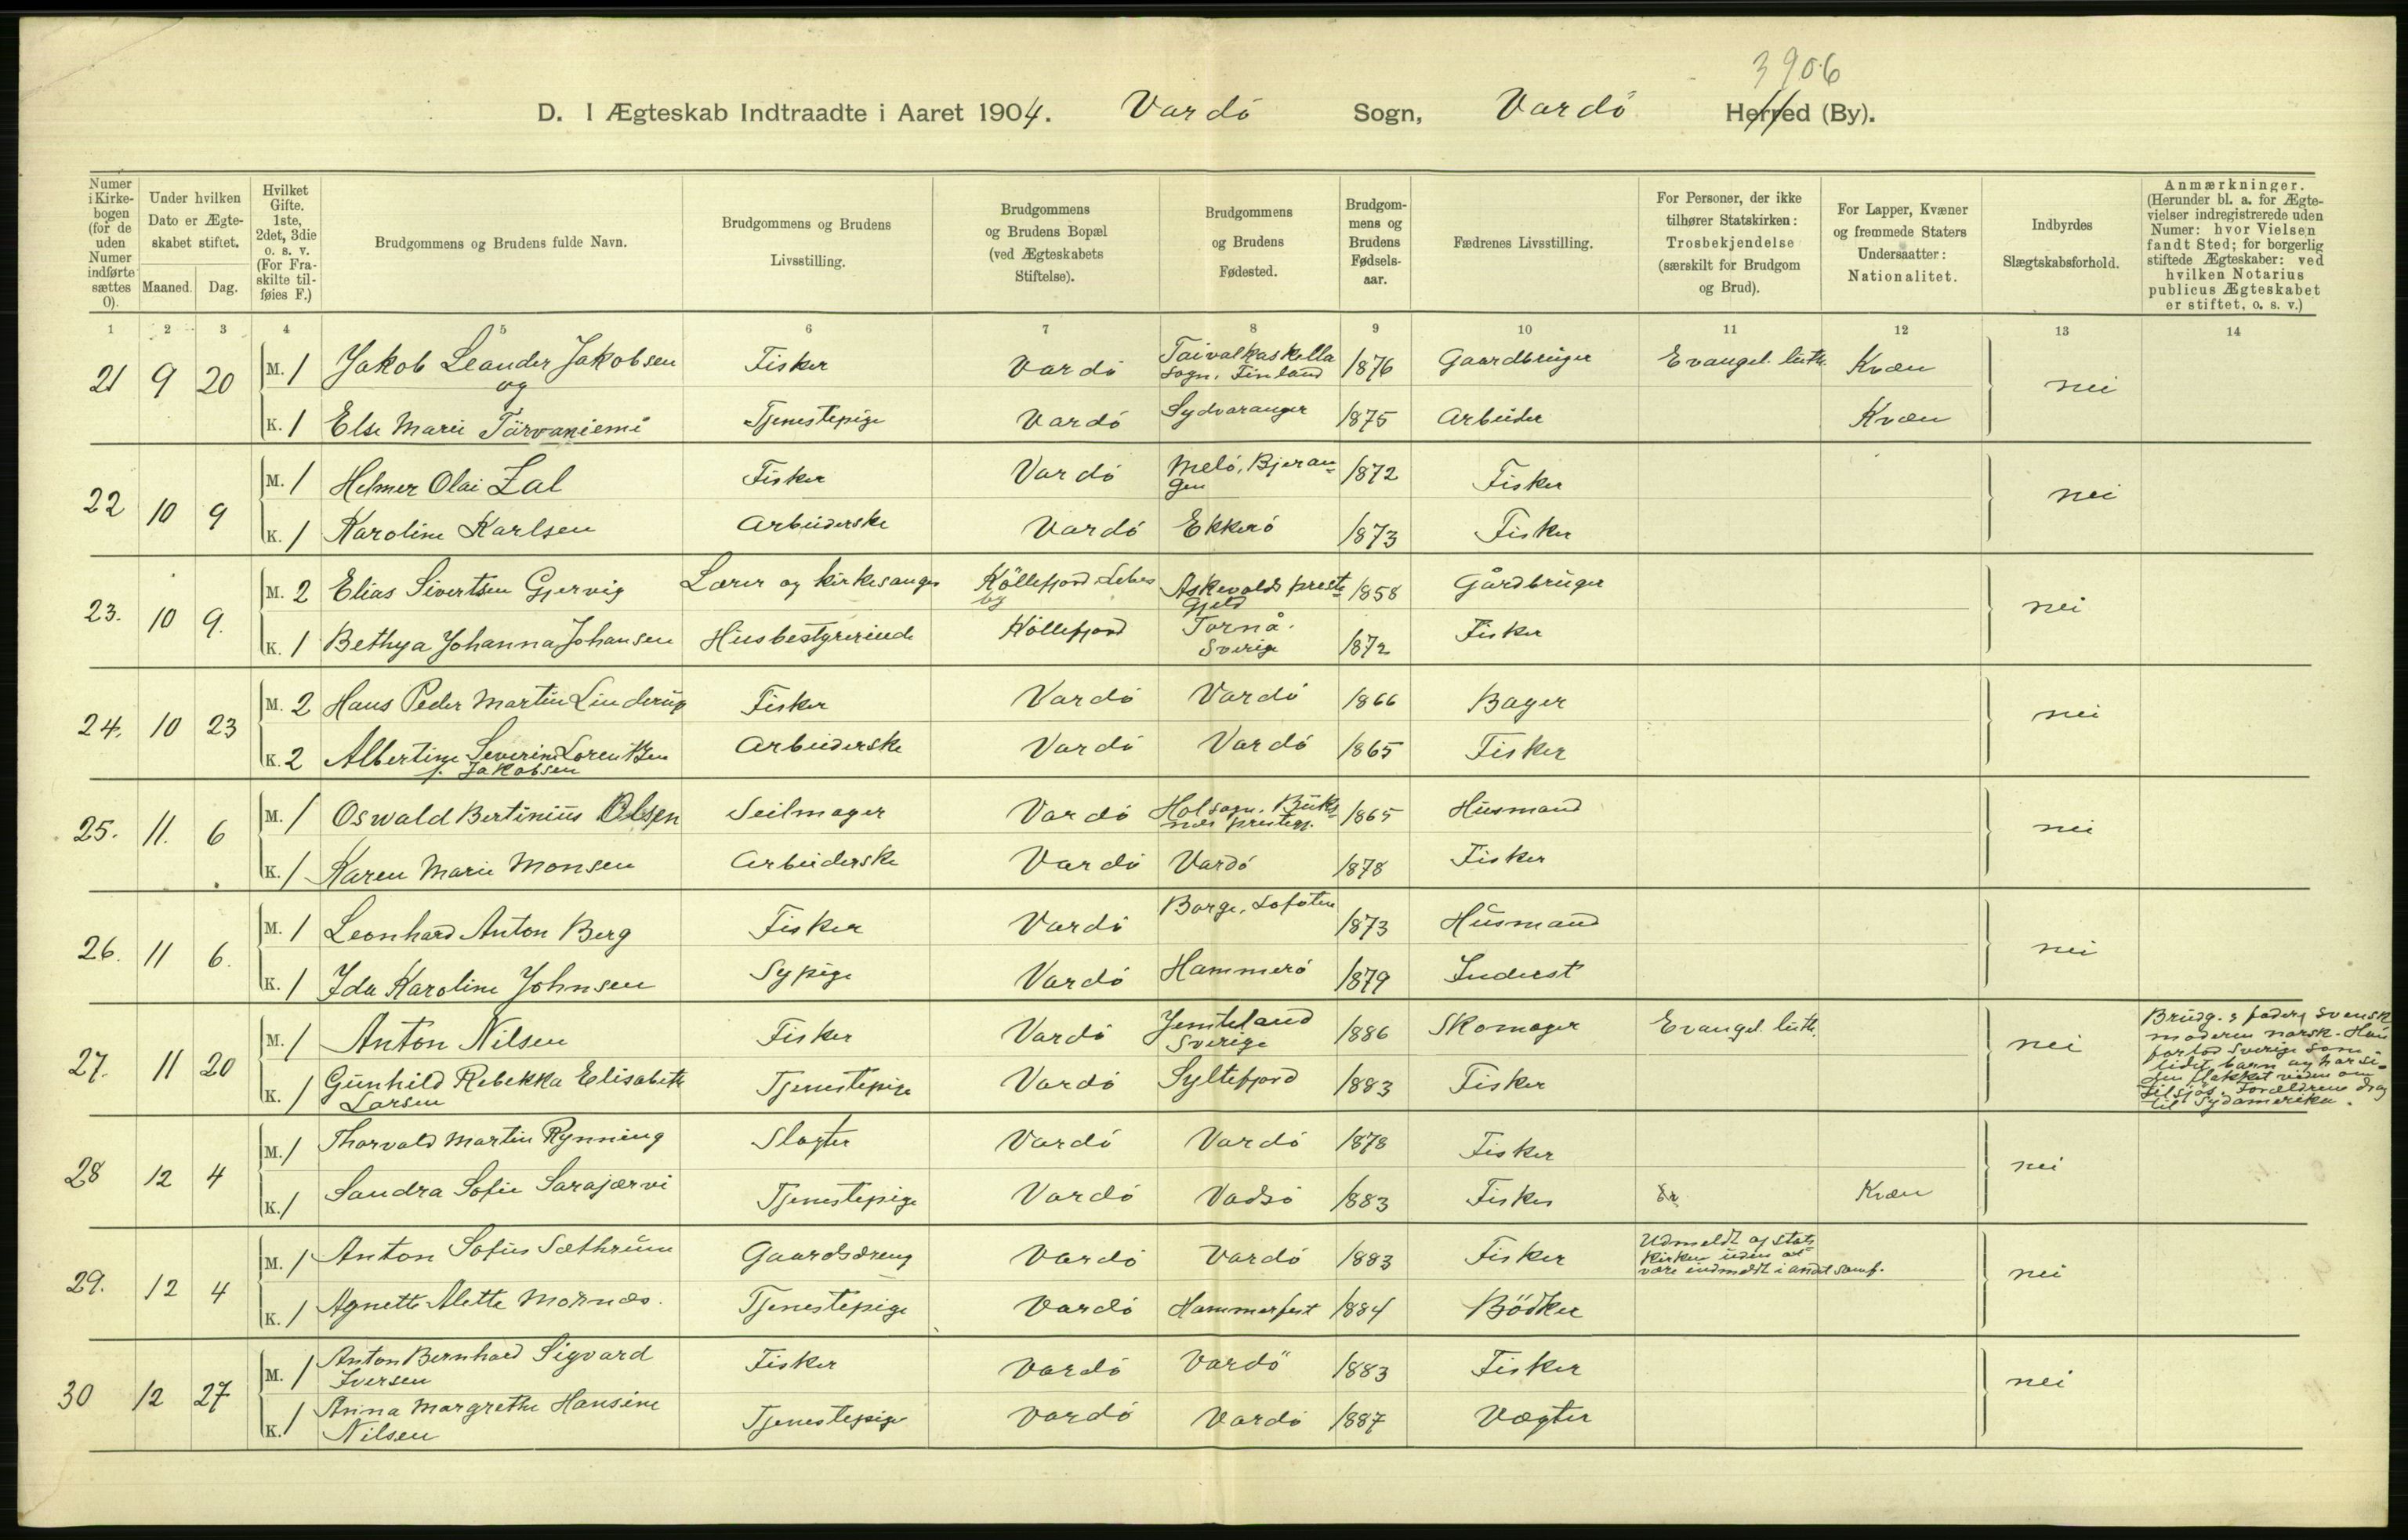 3906
D. I Ægteskab Indtraadte i Aaret 1904. Vardö Sogn, Vardö Herred (By).
Numer i Kirkebogen (for de uden Numer indførte sættes 0).
Under hvilken Dato er Ægteskabet stiftet.
Maaned. Dag.
Hvilket Gifte. 1ste, 2det, 3die o. s. v. (For Fraskilte tilføies F.)
Brudgommens og Brudens fulde Navn.
Brudgommens og Brudens Livsstilling.
Brudgommens og Brudens Bopæl (ved Ægteskabets Stiftelse).
Brudgommens og Brudens Fødested.
Brudgommens og Brudens Fødselsaar.
Fædrenes Livsstilling.
For Personer, der ikke tilhører Statskirken: Trosbekjendelse (særskilt for Brudgom og Brud).
For Lapper, Kvæner og fremmede Staters Undersaatter: Nationalitet.
Indbyrdes Slægtskabsforhold.
Anmærkninger. (Herunder bl. a. for Ægtevielser indregistrerede uden Numer: hvor Vielsen fandt Sted; for borgerlig stiftede Ægteskaber: ved hvilken Notarius publicus Ægteskabet er stiftet, o. s. v.)
1 2 3 4 5 6 7 8 9 10 11 12 13 14
21 9 20 M. 1 Jakob Leander Jakobsen og Fisker Vardö Taivalkaskella sogn, Finland 1876 Gaardbruger Evangel. luth. Kvæn nei
K. 1 Else Marie Törvaniemi Tjenestepige Vardö Sydvaranger 1875 Arbeider Kvæn
22 10 9 M. 1 Helmer Olai Zal Fisker Vardö Melö, Bjerangen 1872 Fisker nei
K. 1 Karoline Karlsen Arbeiderske Vardö Ekkerö 1873 Fisker
23. 10 9. M. 2 Elias Sivertsen Gjervig Lærer og kirkesanger Köllefjord Lebesby Askevolds prestegjeld 1858 Gårdbruger nei
K. 1 Bethya Johanna Johansen Husbestyrerinde Köllefjord Tornå. Sverige 1872 Fisker
24. 10 23 M. 2 Hans Peder Martin Linderup Fisker Vardö Vardö 1866 Bager nei
K. 2 Albertine Severine Lorentzen f. Jakobsen Arbeiderske Vardö Vardö 1865 Fisker
25. 11. 6 M. 1 Oswald Bertinius Olsen Seilmager Vardö Hol sogn, Buksnes prestegj. 1865 Husmand nei
K. 1 Karen Marie Monsen Arbeiderske Vardö Vardö 1878 Fisker
26. 11 6. M. 1 Leonhard Anton Berg Fisker Vardö Borge, Lofoten 1873 Husmand nei
K. 1 Ida Karoline Johnsen Sypige Vardö Hammerö 1879 Inderst
27. 11 20 M. 1 Anton Nilsen Fisker Vardö Jemteland Sverige 1886 Skomager Evangel. luth. nei
Brudg.s fader svensk
moderen norsk. Han
forlod Sverige som
lidet barn og har si-
den flakket viden om
til sjös. Forældrene drog
til Sydamerika.
K. 1 Gunhild Rebekka Elisabeth Larsen Tjenestepige Vardö Syltefjord 1883 Fisker
28 12 4 M. 1 Thorvald Martin Rynning Slagter Vardö Vardö 1878 Fisker nei
K. 1 Sandra Sofie Sarajærvi Tjenestepige Vardö Vadsö 1883 Fisker Kvæn
29. 12 4 M. 1 Anton Sofus Sæthrum Gaardsdreng Vardö Vardö 1883 Fisker Udmeldt af stats kirken uden at være indmeldt i andet samf. nei
K. 1 Agnette Alette Mornæs. Tjenestepige Vardö Hammerfest 1884 Bödker
30 12 27 M. 1 Anton Bernhard Sigvard Iversen Fisker Vardö Vardö 1883 Fisker nei
K. 1 Anna Margrethe Hansine Nilsen Tjenestepige Vardö Vardö 1887 Vægter